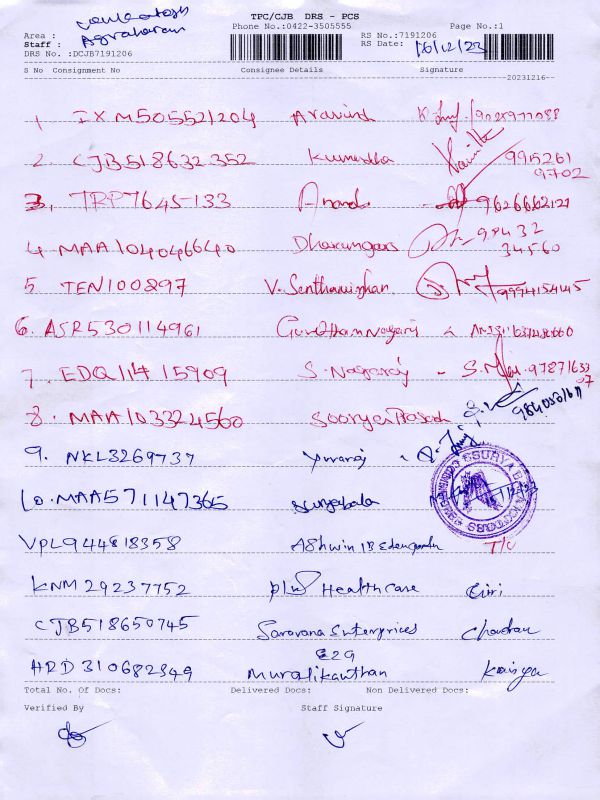 TPC/CJB DRS - PCS
Phone No.:0422-3505555 Page No.:1
Area : Agraharam
Staff :
DRS No. :DCJB7191206
RS No.:7191206
RS Date: 16/12/23
S No Consignment No Consignee Details Signature
20231216--
1 IXM505521204 Aravind
2. CJB518632352 995261
9702
3. TRP7645133 Anand 9626662121
4. MAA104046640 98432
34560
5. TEN100897 V. Senthamizhan 9994154145
6. ASR530114961
7. EDQ11415909 S. Nagaraj - 97871633
07
8. MAA103324560 Soorya Prasad
9. NKL3269737 Yuvaraj
10. MAA571147365 Suryabala
VPL944818358 Ashwin T/C
KNM29237752 plus Healthcare Giri
CJB518650745 Saravana Enterprices Chandran
HRD310682349 Muralikanthan
Total No. Of Docs: Delivered Docs: Non Delivered Docs:
Verified By Staff Signature